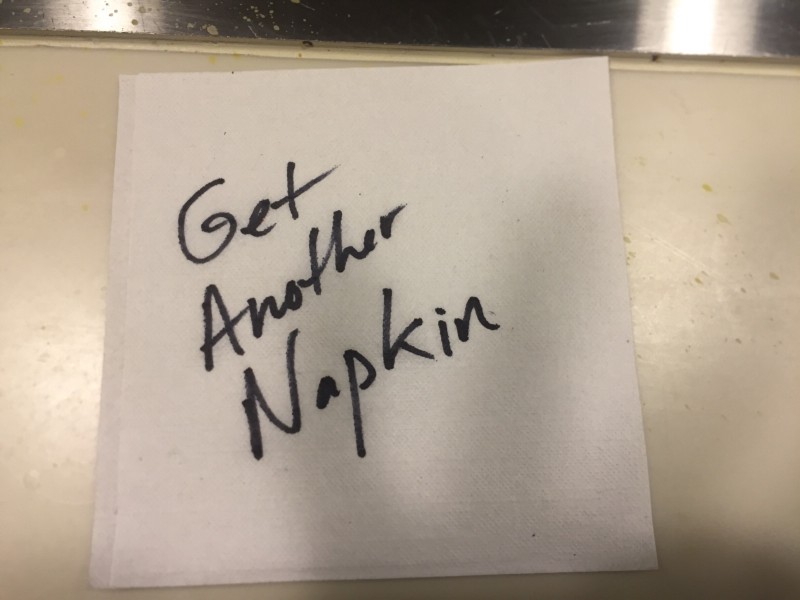 Get
Another
Napkin